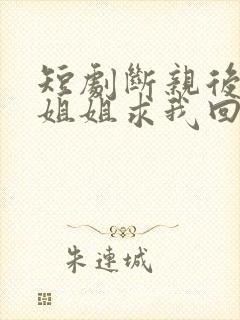 短劇斷親後
姐姐求我回
朱連城